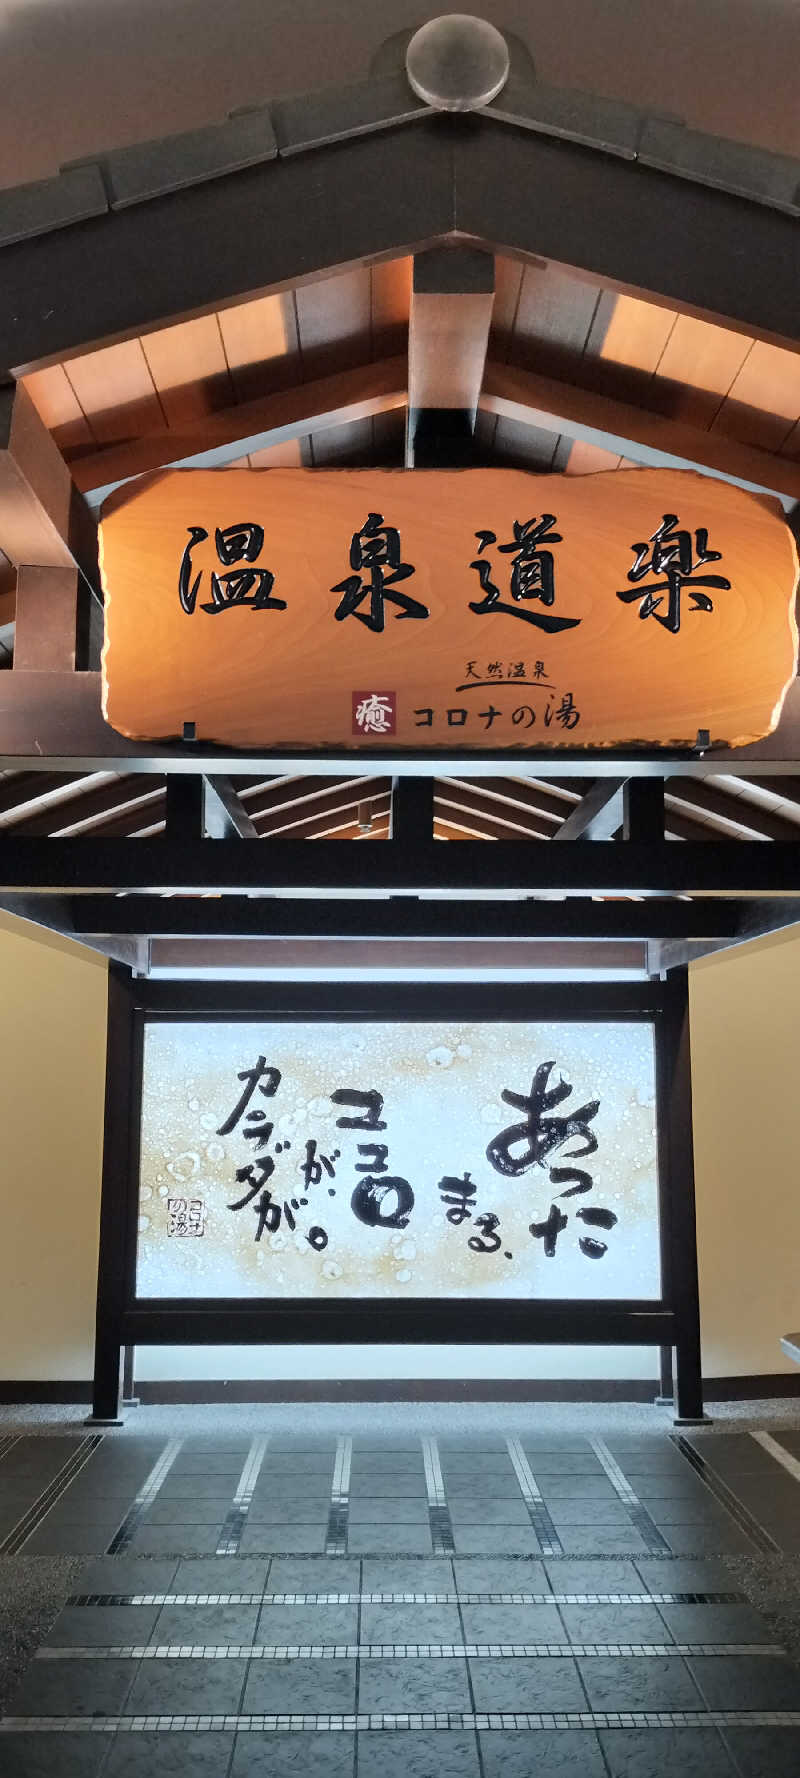 温泉道楽
天然温泉
癒 コロナの湯
あったまる、
ココロが、
カラダが。
コロナの湯